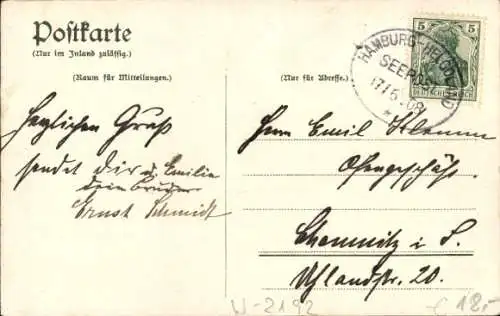 Postkarte
(Nur im Inland zulässig.)
(Raum für Mitteilungen.)
(Nur für Adresse.)
5 5
DEUTSCHES REICH
HAMBURG-HELGOLAND
SEEPOST
17/5 08
*
Herzlichen Gruß
sendet Dir u. Emilie
dein Bruder
Ernst Schmidt
Herrn Emil Klemm
Ofengeschäft
Chemnitz i. S.
Uhlandstr. 20.
W-2192
€ 18,-